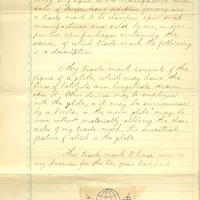 sale of soap, have adopted for my use
a trade mark to be stamped upon soap
manufactured and sold by me, or upon
packages containing the
same, of which trade mark the following
is a description.
My trade mark consists of the
figure of a globe, which may have the
lines of latitude and longitude drawn
Other devices may be employed
with the globe, or it may be surrounded
by a border, or the word "globe" may be
without materially altering the char-
acter of my trade mark, the essential
feature of which is the globe.
This trade mark I have used in
my business for the ten years last past.